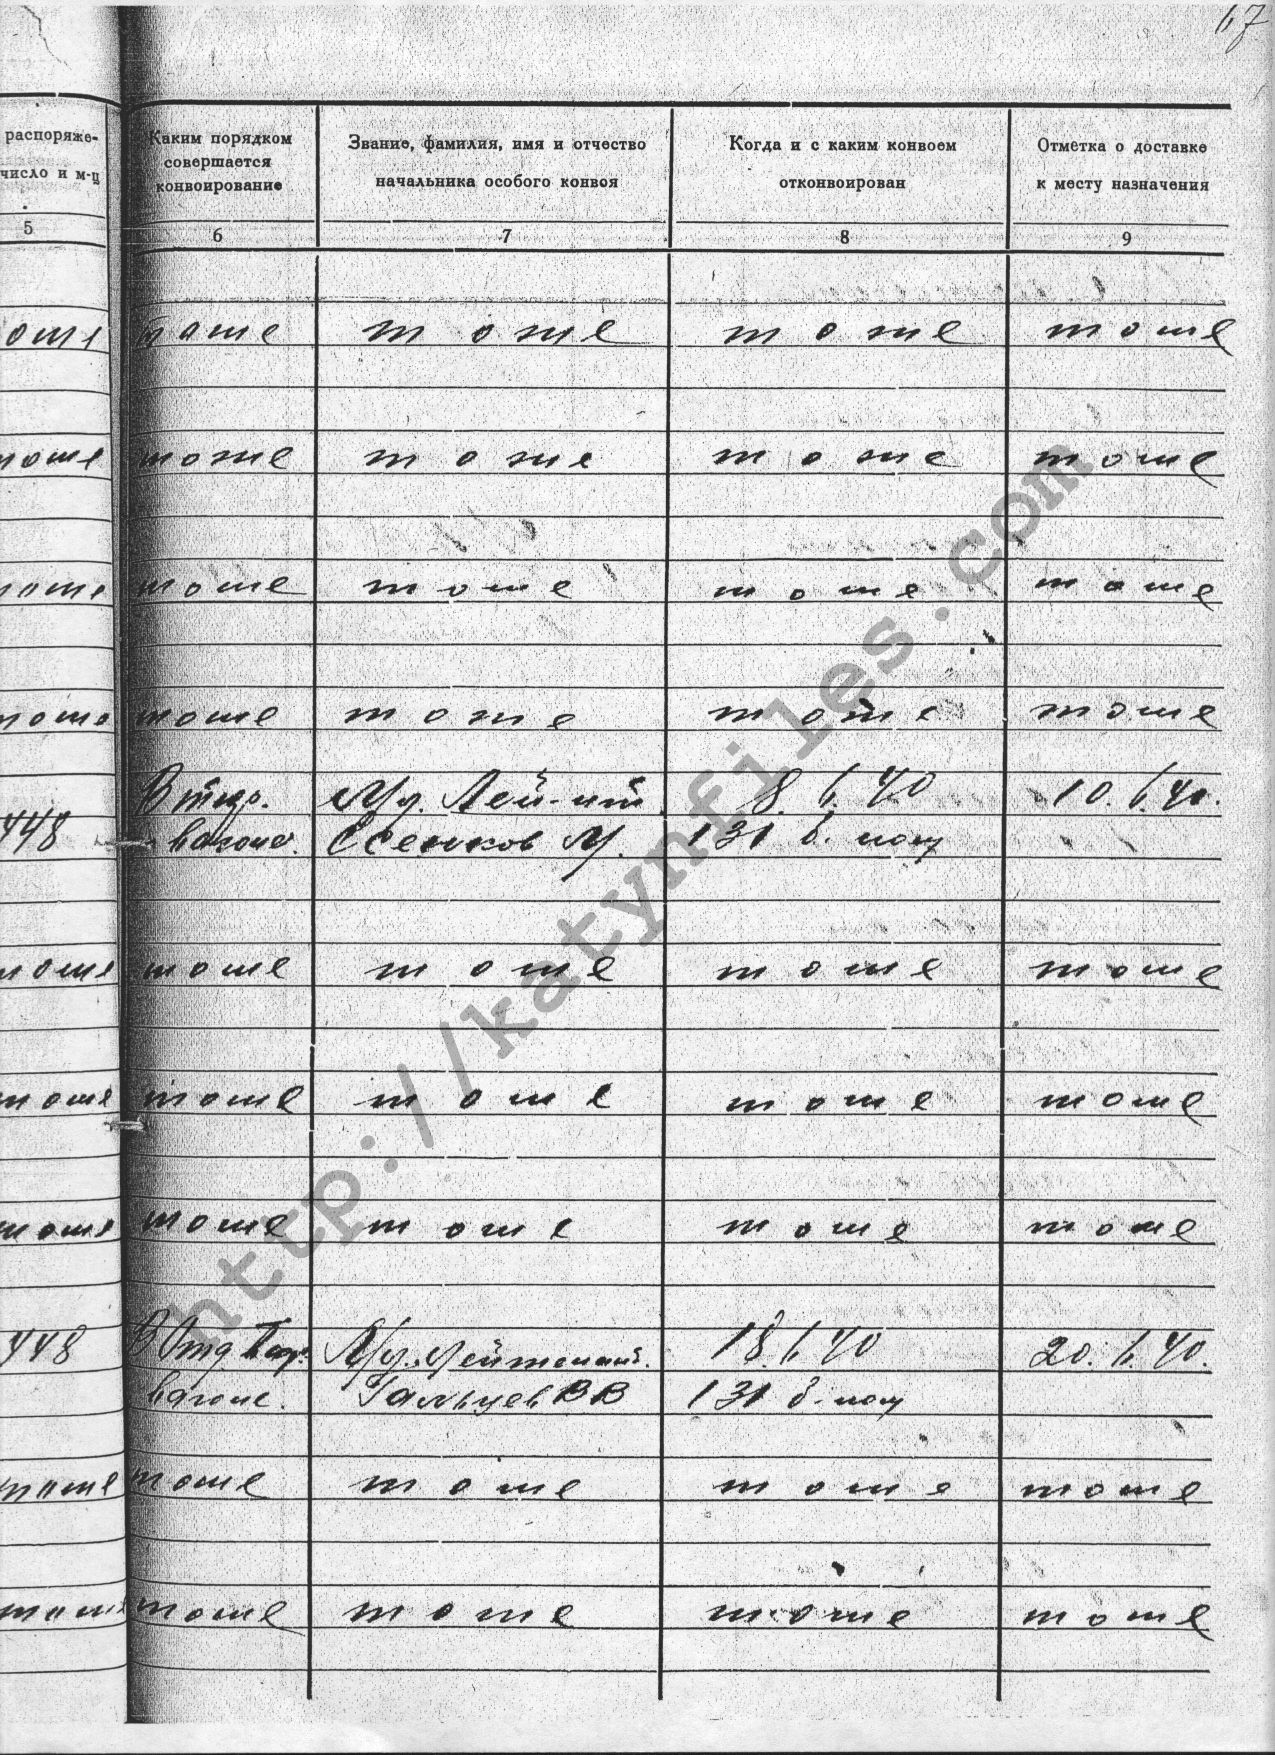 17
распоряже-
число и м-ц
Каким порядком
совершается
конвоирование
Звание, фамилия, имя и отчество
начальника особого конвоя
Когда и с каким конвоем
отконвоирован
Отметка о доставке
к месту назначения
5 6 7 8 9
оже тоже тоже тоже тоже
тоже тоже тоже тоже тоже
тоже тоже тоже тоже тоже
тоже тоже тоже тоже тоже
В тюр. Мл. Лей-нт 8. 40 10. 40.
448 вагоне. Есенков М. 131 б.
тоже тоже тоже тоже тоже
тоже тоже тоже тоже тоже
тоже тоже тоже тоже тоже
448 В Отд Тюр. Мл. Лейтенант. 18. 40 20. 40.
вагоне. Гальцев ВВ 131 б.
тоже тоже тоже тоже тоже
тоже тоже тоже тоже тоже
http://katynfiles.com